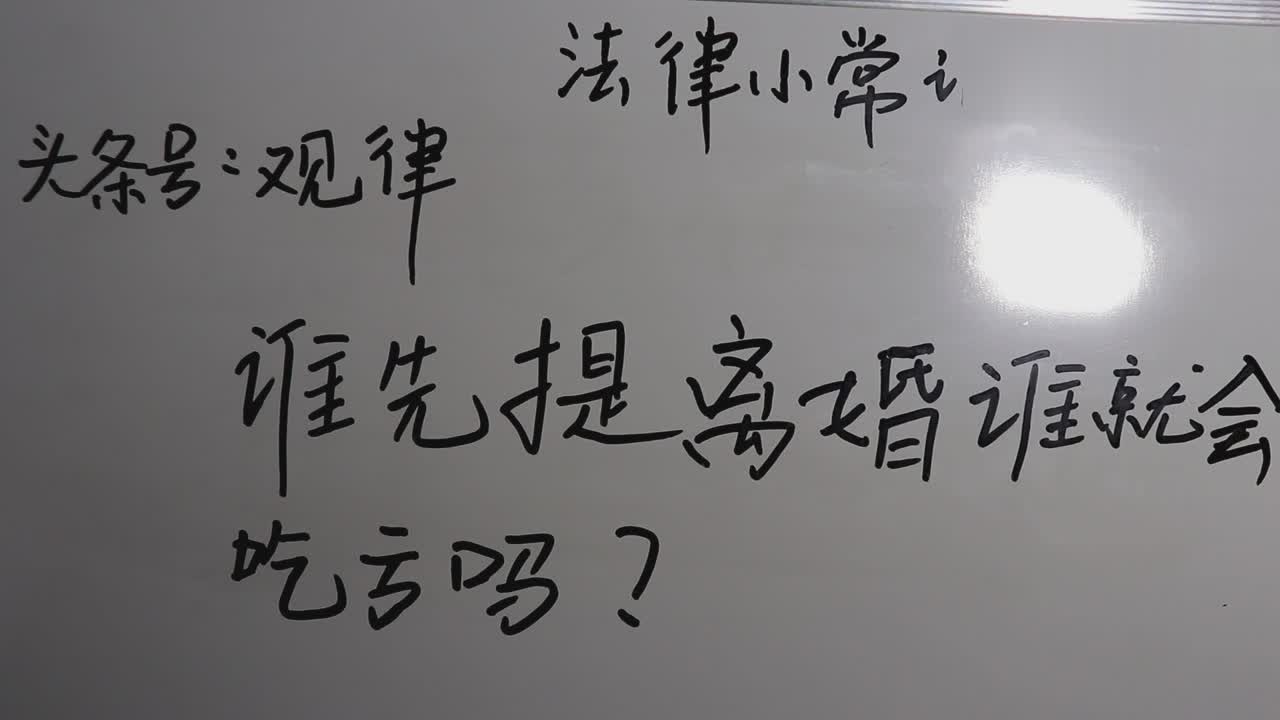 法律小常
头条号:观律
谁先提离婚谁就会
吃亏吗?